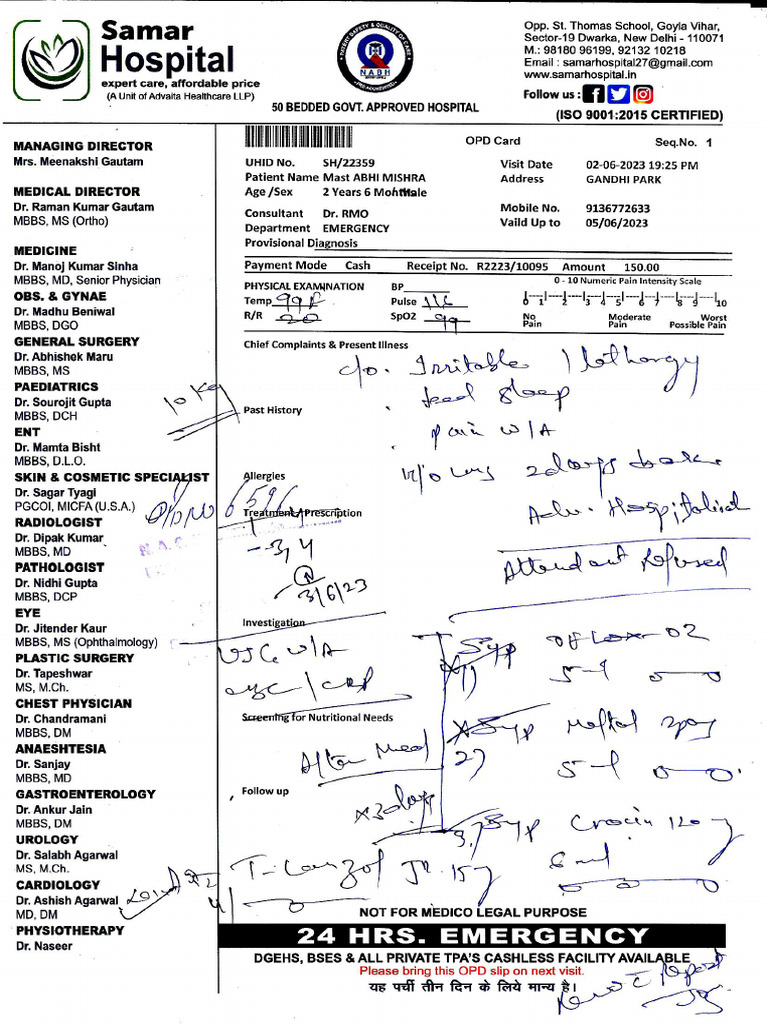 Samar
Hospital
expert care, affordable price
(A Unit of Advaita Healthcare LLP)
PATIENT SAFETY & QUALITY OF CARE
NABH
50 BEDDED GOVT. APPROVED HOSPITAL
Opp. St. Thomas School, Goyla Vihar,
Sector-19 Dwarka, New Delhi - 110071
M.: 98180 96199, 92132 10218
Email : samarhospital27@gmail.com
www.samarhospital.in
Follow us :
(ISO 9001:2015 CERTIFIED)
MANAGING DIRECTOR
Mrs. Meenakshi Gautam
MEDICAL DIRECTOR
Dr. Raman Kumar Gautam
MBBS, MS (Ortho)
MEDICINE
Dr. Manoj Kumar Sinha
MBBS, MD, Senior Physician
OBS. & GYNAE
Dr. Madhu Beniwal
MBBS, DGO
GENERAL SURGERY
Dr. Abhishek Maru
MBBS, MS
PAEDIATRICS
Dr. Sourojit Gupta
MBBS, DCH
ENT
Dr. Mamta Bisht
MBBS, D.L.O.
SKIN & COSMETIC SPECIALIST
Dr. Sagar Tyagi
PGCOI, MICFA (U.S.A.)
RADIOLOGIST
Dr. Dipak Kumar
MBBS, MD
PATHOLOGIST
Dr. Nidhi Gupta
MBBS, DCP
EYE
Dr. Jitender Kaur
MBBS, MS (Ophthalmology)
PLASTIC SURGERY
Dr. Tapeshwar
MS, M.Ch.
CHEST PHYSICIAN
Dr. Chandramani
MBBS, DM
ANAESTHESIA
Dr. Sanjay
MBBS, MD
GASTROENTEROLOGY
Dr. Ankur Jain
MBBS, DM
UROLOGY
Dr. Salabh Agarwal
MS, M.Ch.
CARDIOLOGY
Dr. Ashish Agarwal
MD, DM
PHYSIOTHERAPY
Dr. Naseer
OPD Card
Seq.No. 1
UHID No. SH/22359
Visit Date 02-06-2023 19:25 PM
Patient Name Mast ABHI MISHRA
Address GANDHI PARK
Age /Sex 2 Years 6 Months Male
Consultant Dr. RMO
Mobile No. 9136772633
Department EMERGENCY
Vaild Up to 05/06/2023
Provisional Diagnosis
Payment Mode Cash Receipt No. R2223/10095 Amount 150.00
PHYSICAL EXAMINATION BP
0 - 10 Numeric Pain Intensity Scale
Temp 99 F Pulse 116
0 1 2 3 4 5 6 7 8 9 10
R/R 20 SpO2 99
No Pain Moderate Pain Worst Possible Pain
Chief Complaints & Present Illness
c/o. Irritable / lethargy
sleep
10 kg
Past History
pain w/A
Allergies
2 days
6596
Adv. Hospitalised
Treatment / Prescription
Attendant Refused
3, 4
3/6/23
Investigation
USG W/A
CBC / CRP
1) Syp Oflox-02
5-ml
Screening for Nutritional Needs
After Meal
2) Syp meftal
5-ml
Follow up
x 3 days
3) Syp Crocin 120
6 ml
T- Lanzol Jr. 15
NOT FOR MEDICO LEGAL PURPOSE
24 HRS. EMERGENCY
DGEHS, BSES & ALL PRIVATE TPA'S CASHLESS FACILITY AVAILABLE
Please bring this OPD slip on next visit.
यह पर्ची तीन दिन के लिये मान्य है।
Report